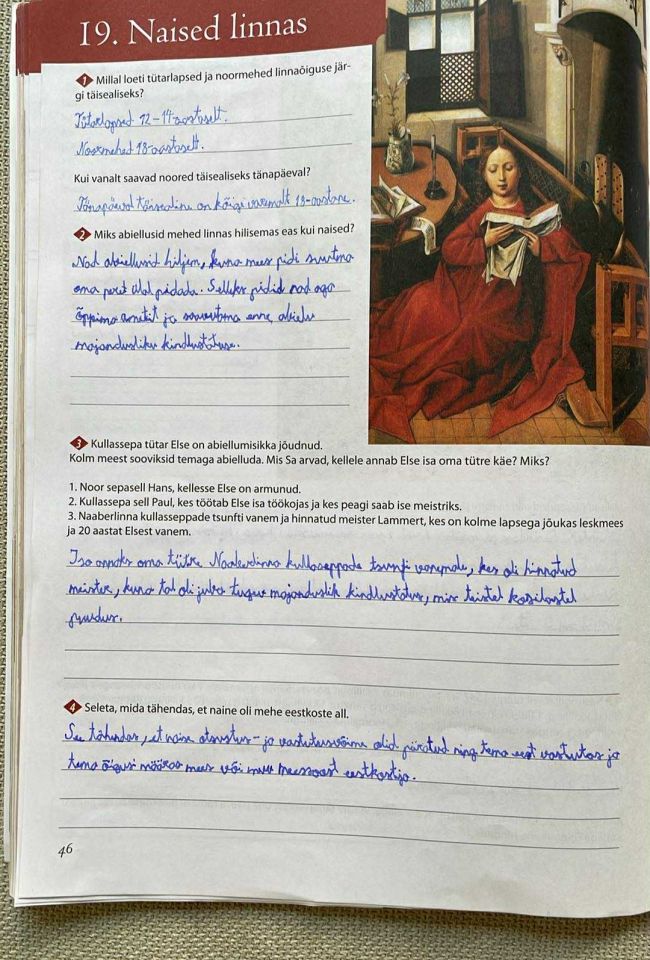 19. Naised linnas
1 Millal loeti tütarlapsed ja noormehed linnaõiguse jär-
gi täisealiseks?
Tütarlapsed 12-14-aastaselt.
Noormehed 18-aastaselt.
Kui vanalt saavad noored täisealiseks tänapäeval?
Tänapäeval täisealine on kõige varemalt 18-aastane.
2 Miks abiellusid mehed linnas hilisemas eas kui naised?
Nad abiellusid hiljem, kuna mees pidi suutma
oma peret ülal pidada. Selleks pidid nad aga
õppima ametit ja saavutama enne abielu
majandusliku kindlustatuse.
3 Kullassepa tütar Else on abiellumisikka jõudnud.
Kolm meest sooviksid temaga abielluda. Mis Sa arvad, kellele annab Else isa oma tütre käe? Miks?
1. Noor sepasell Hans, kellesse Else on armunud.
2. Kullassepa sell Paul, kes töötab Else isa töökojas ja kes peagi saab ise meistriks.
3. Naaberlinna kullasseppade tsunfti vanem ja hinnatud meister Lammert, kes on kolme lapsega jõukas leskmees
ja 20 aastat Elsest vanem.
Isa annaks oma tütre Naaberlinna kullasseppade tsunfti vanemale, kes oli hinnatud
meister, kuna tal oli juba tugev majanduslik kindlustatus, mis teistel kosilastel
puudus.
4 Seleta, mida tähendas, et naine oli mehe eestkoste all.
See tähendas, et naise otsustus- ja vastutusvõime olid piiratud ning tema eest vastutas ja
tema õigusi määras mees või muu meessoost eestkostja.
46